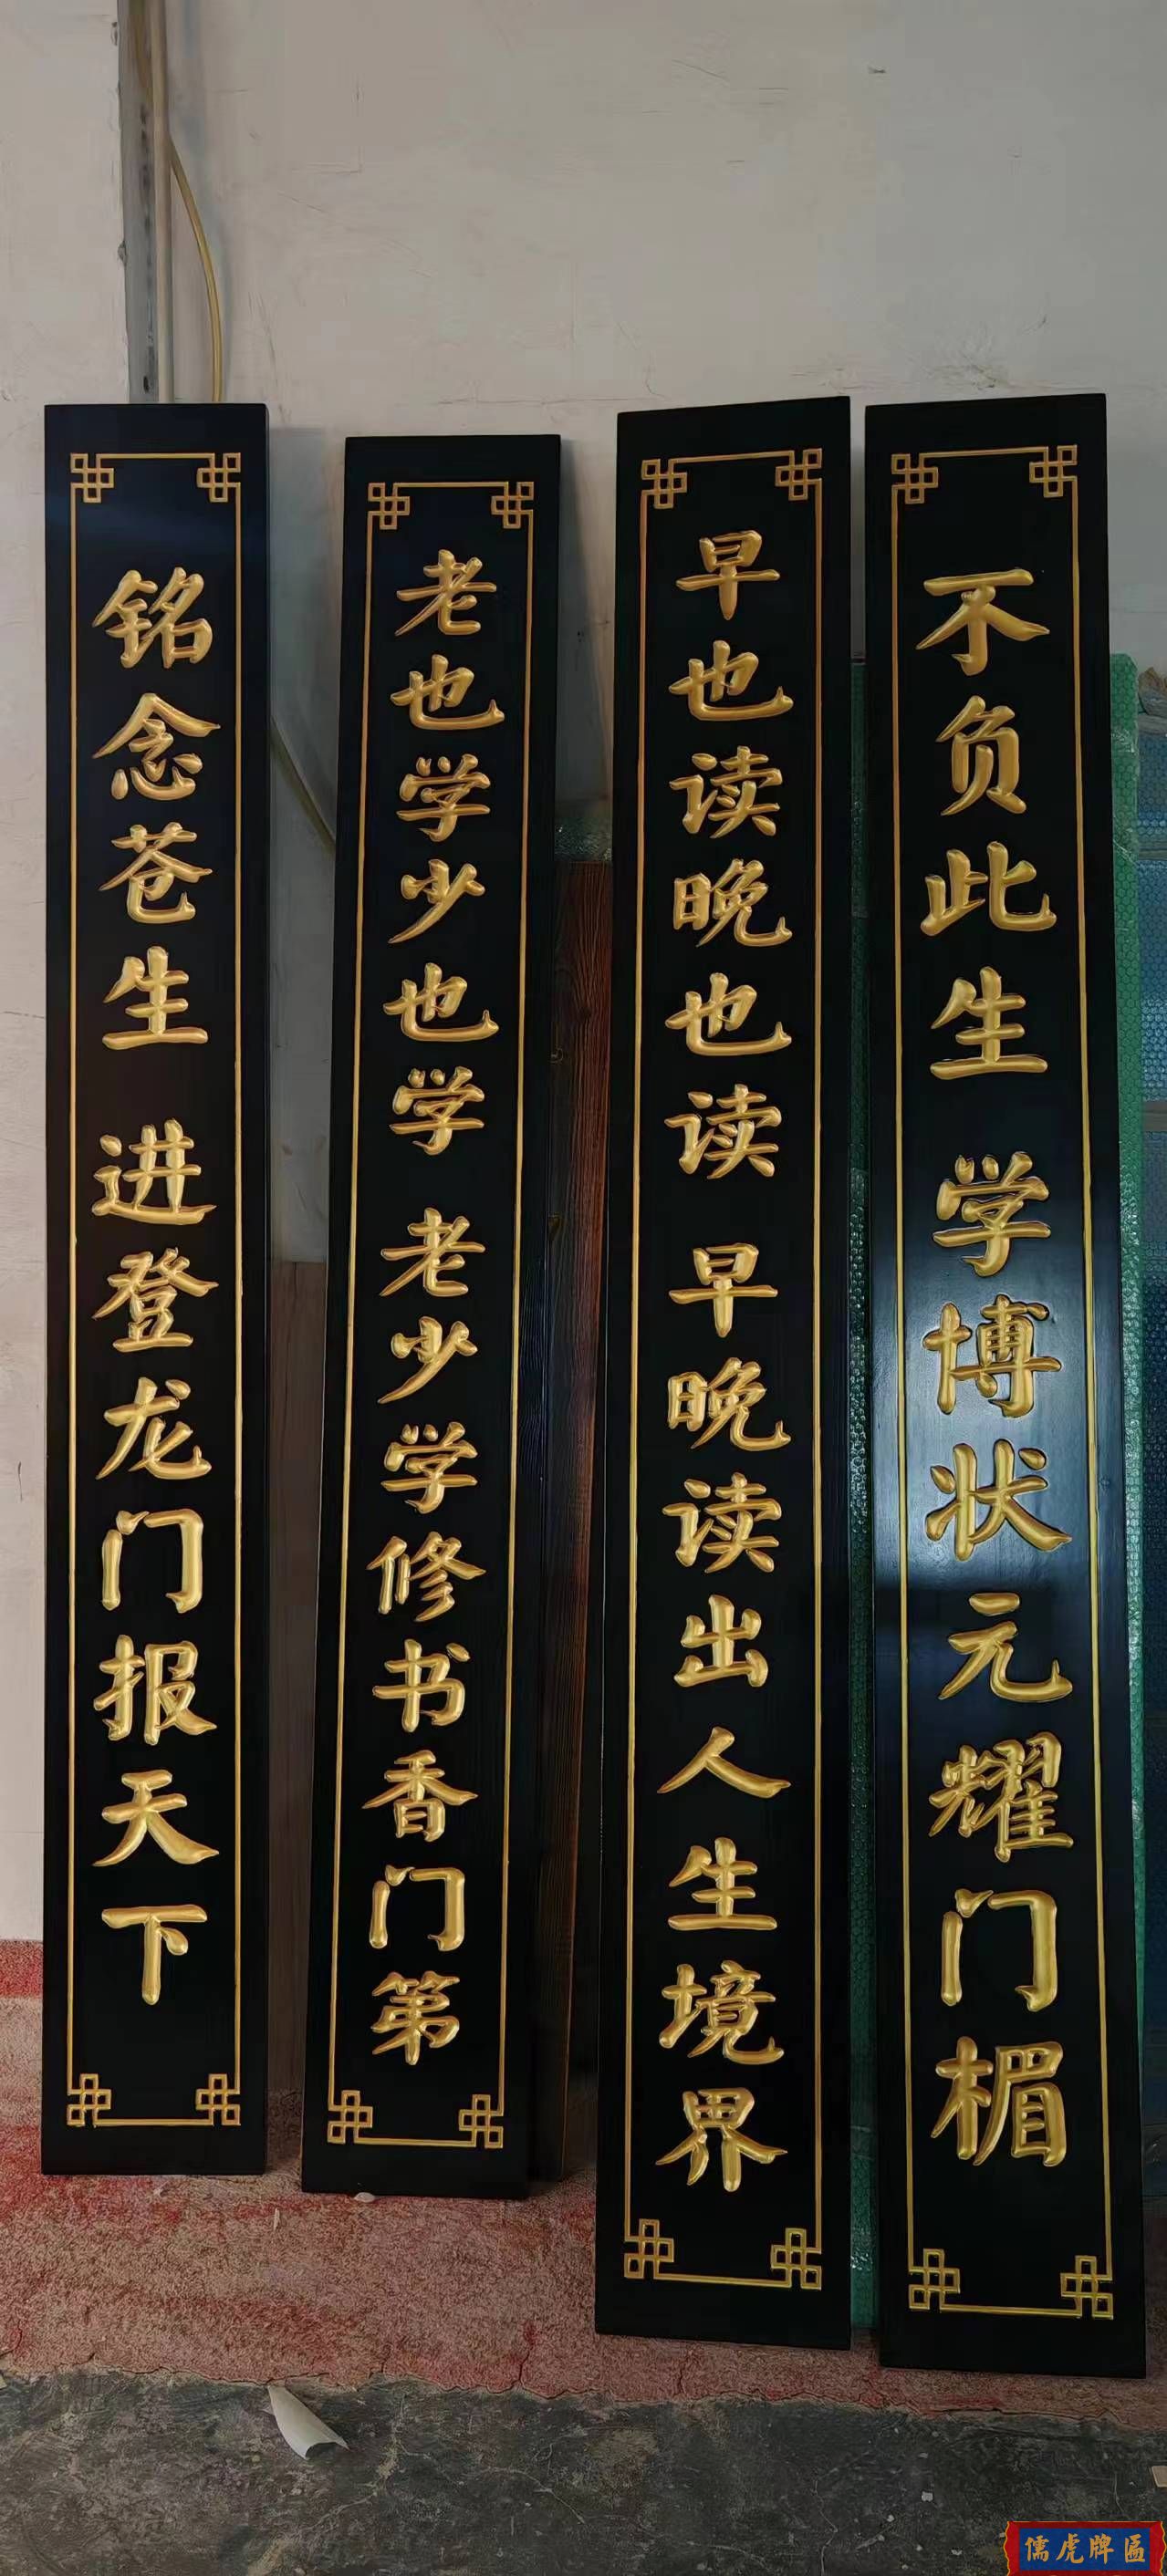 不负此生 学博状元耀门楣
早也读晚也读 早晚读出人生境界
老也学少也学 老少学修书香门第
铭念苍生 进登龙门报天下
儒虎牌匾